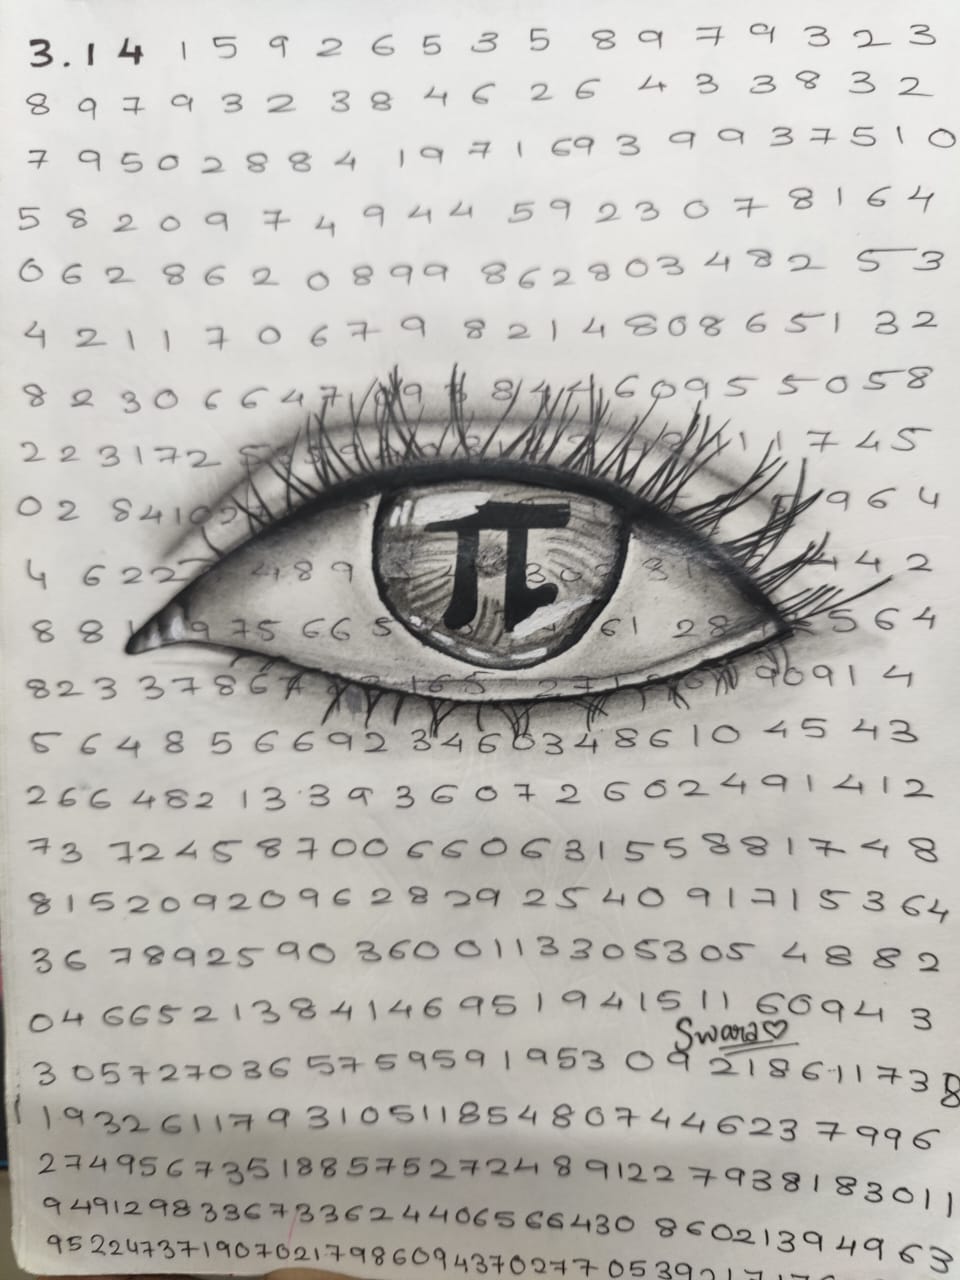 3.14159265358979323
897932384626433832
7950288419716939937510
58209749445923078164
06286208998628034825 3
42117067982148086513 2
8230664709 8446095505 8
223172 11745
02 8410 964
4 622 489 442
88 975665 61 28 564
82337867 165 271 90914
56485669234603486104543
266482133936072602491412
73724587006606315588 1748
81520920962829254091715364
367892590360011330530548 82
04665213841469519415116094 3
Swara♡
305727036575959195309218611738
193261179310511854807446237996
27495673518857527248912279381830 11
9491298336733624406566430860213949 63
95224737190702179860943702770539217176